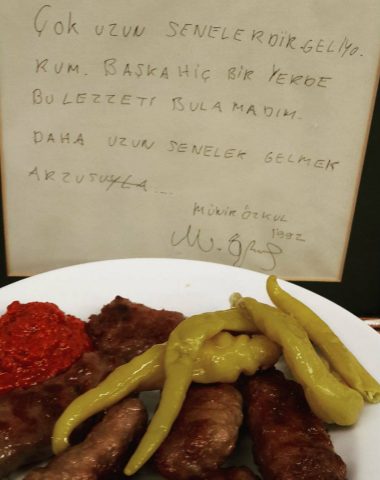 Çok UZUN SENELERDİR GELİYO.
RUM. BAŞKA HİÇ BİR YERDE
BU LEZZETİ BULAMADIM.
DAHA UZUN SENELER GELMEK
ARZUSUYLA....
MÜNİR ÖZKUL
1992
M. Özkul